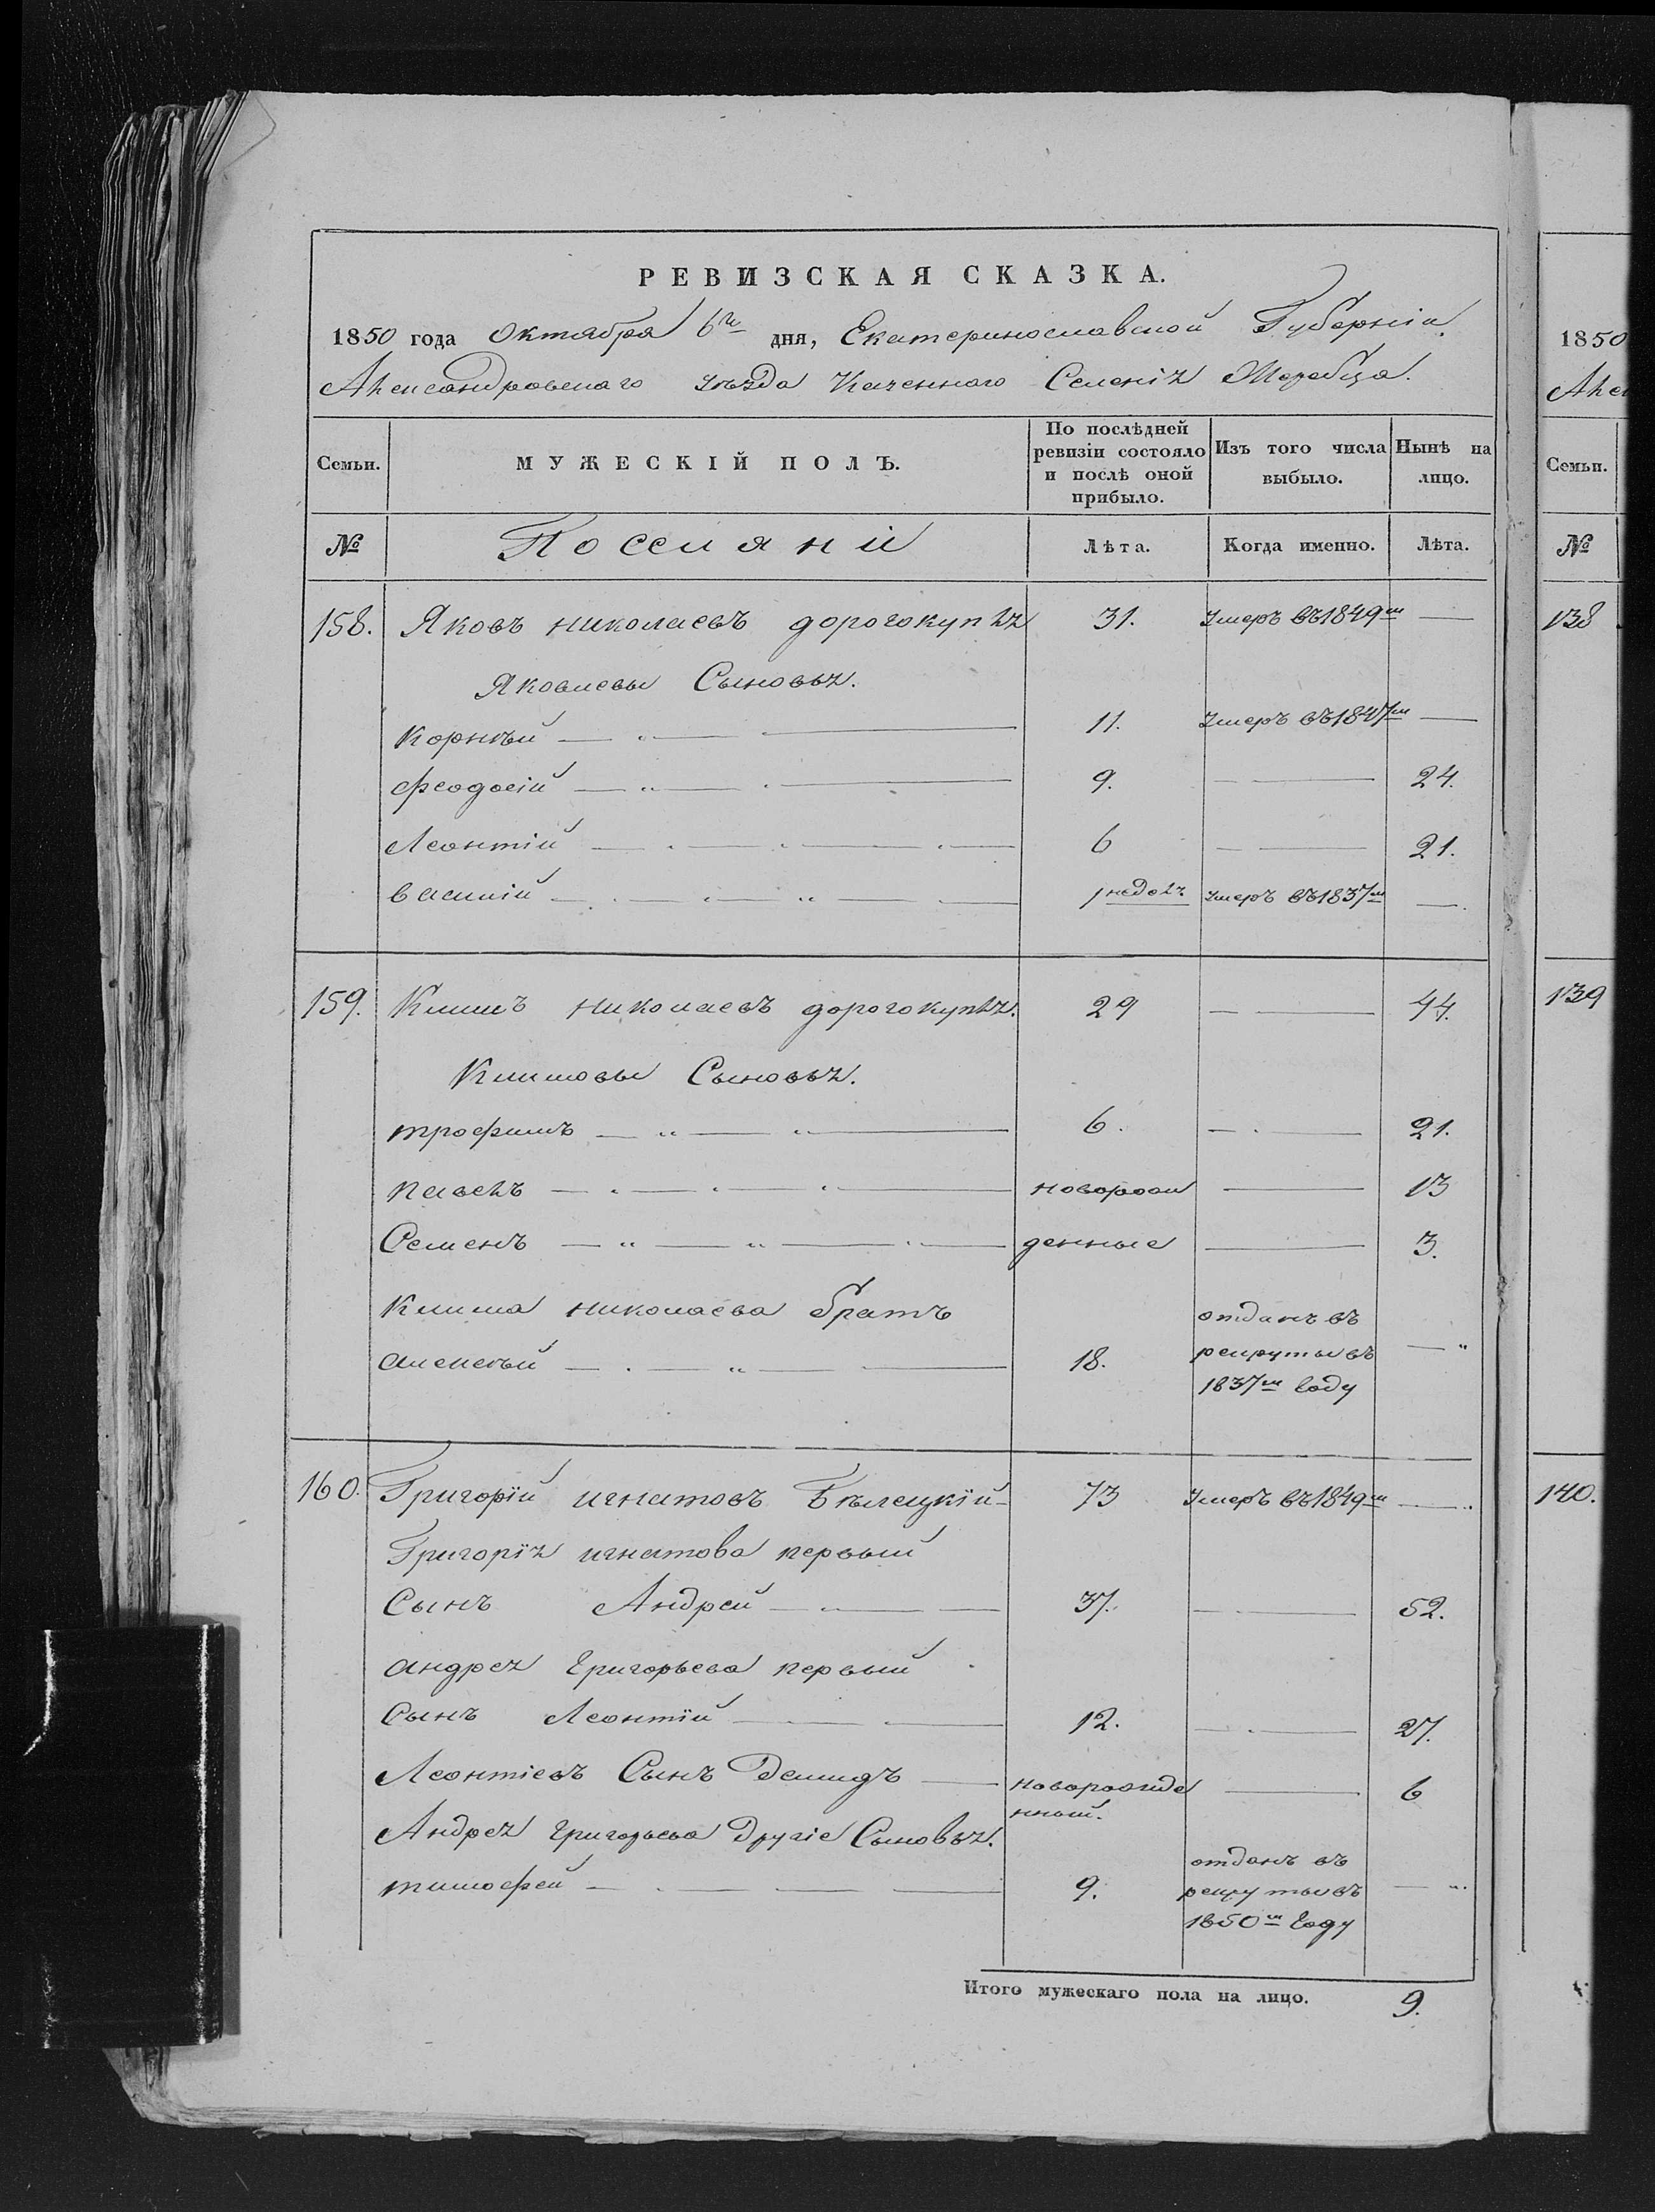 РЕВИЗСКАЯ СКАЗКА.
1850 года Октября 6го дня, Екатеринославской Губерніи.
Александровскаго уѣзда Казенного Селенія Жеребца.
Семьи. МУЖЕСКІЙ ПОЛЪ. По послѣдней ревизіи состояло и послѣ оной прибыло. Изъ того числа выбыло. Нынѣ на лицо.
№ Поселяни Лѣта. Когда именно. Лѣта.
158. Яковъ николаевъ дорогокупля 31. Умеръ въ 1849м —
Яковлевы Сыновья.
Корнѣй — „ — 11. Умеръ въ 1847м —
Феодосій — „ — 9. — 24.
Леонтій — 6 — 21.
василій — „ — 1 недел. Умеръ въ 1837м —
159. Климъ николаевъ дорогокупля. 29 — 44.
Климовы Сыновья.
трофимъ — „ — „ — 6. — 21.
павелъ — „ — новорож — 13
Семенъ — „ — „ — денные — 3.
Клима николаева братъ
алексѣй — „ — 18. отданъ въ рекруты въ 1837м году — „
160. Григорій игнатовъ Бѣлецкій — 73 Умеръ въ 1849м —
Григорія игнатова первый
Сынъ Андрей — 37. — 52.
андрея Григорьева первый
Сынъ Леонтій — 12. — 27.
Леонтіевъ Сынъ Демидъ — новорожде нный. — 6
Андрея Григорьева Другіе Сыновья.
тимофей — 9. отданъ въ рекруты въ 1850м году — „
Итого мужескаго пола на лицо. 9.
1850
Але
Семьи.
№
138
139
140.